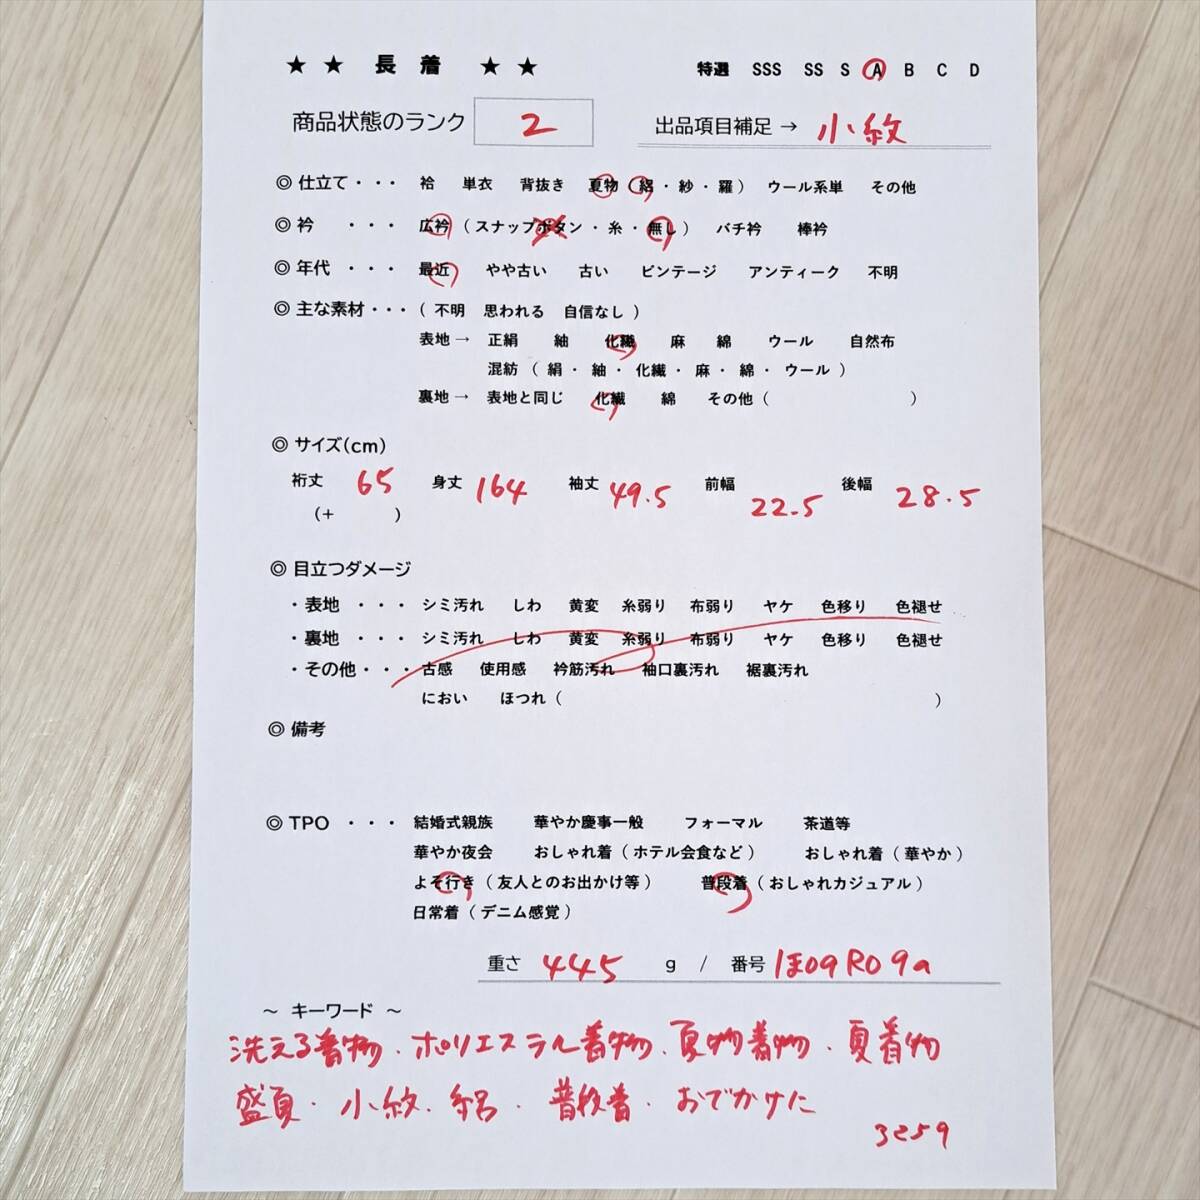 ★ ★ 長 着 ★ ★ 特選 SSS SS S A B C D
商品状態のランク 2 出品項目補足 → 小紋
◎ 仕立て・・・ 袷 単衣 背抜き 夏物 ( 絽 ・ 紗 ・ 羅 ) ウール系単 その他
◎ 衿 ・・・ 広衿 ( スナップボタン ・ 糸 ・ 無し ) バチ衿 棒衿
◎ 年代 ・・・ 最近 やや古い 古い ビンテージ アンティーク 不明
◎ 主な素材・・・ ( 不明 思われる 自信なし )
表地 → 正絹 紬 化繊 麻 綿 ウール 自然布
混紡 ( 絹 ・ 紬 ・ 化繊 ・ 麻 ・ 綿 ・ ウール )
裏地 → 表地と同じ 化繊 綿 その他 ( )
◎ サイズ(cm)
裄丈 65 身丈 164 袖丈 49.5 前幅 22.5 後幅 28.5
(+ )
◎ 目立つダメージ
・表地 ・・・ シミ汚れ しわ 黄変 糸弱り 布弱り ヤケ 色移り 色褪せ
・裏地 ・・・ シミ汚れ しわ 黄変 糸弱り 布弱り ヤケ 色移り 色褪せ
・その他・・・ 古感 使用感 衿筋汚れ 袖口裏汚れ 裾裏汚れ
におい ほつれ ( )
◎ 備考
◎ TPO ・・・ 結婚式親族 華やか慶事一般 フォーマル 茶道等
華やか夜会 おしゃれ着 ( ホテル会食など ) おしゃれ着 ( 華やか )
よそ行き ( 友人とのお出かけ等 ) 普段着 ( おしゃれカジュアル )
日常着 ( デニム感覚 )
重さ 445 g / 番号 ほ09R09a
~ キーワード ~
洗える着物・ポリエステル着物・夏物着物・夏着物
盛夏・小紋・絽・普段着・おでかけに
3259